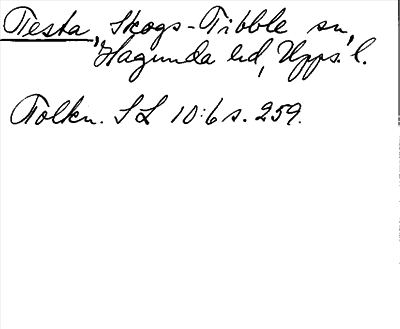 Testa, Skogs-Tibble sn,
Hagunda hd, Upps. l.
Tolkn. SL 10:6 s. 259.